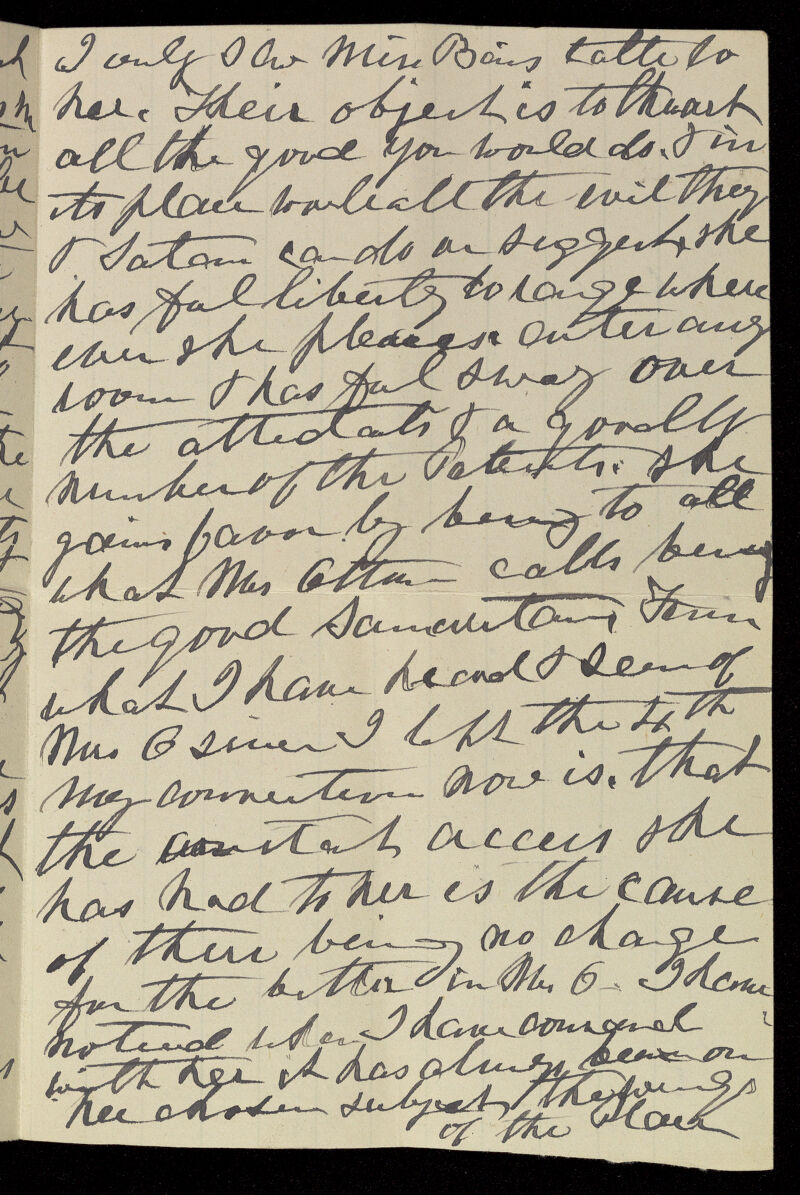 I only saw Miss Bans talk to
her. Their object is to thwart
all the good you would do. & in
its place work all the evil they
& Satan can do or suggest, she
has ful liberty to range where
ever she pleases. enter any
room & has ful sway over
the attedats & a goodly
number of the Patents. She
gains favor by being to all
what Mrs Ottman calls being
the good Samaritan, From
what I have heard & seen of
Mrs O since I left the 4th
my conviction now is. that
the constant access she
has had to her is the cause
of there being no change
for the better in Mrs O - I have
noticed when I have conversed
with her it has always been on
her chosen subject, the
of the Place